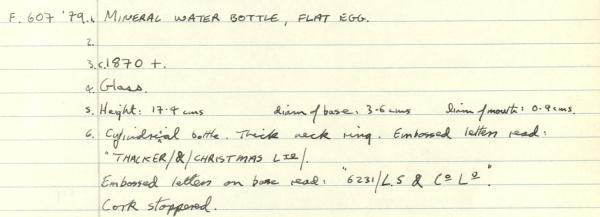 F. 607 '79. 1. MINERAL WATER BOTTLE, FLAT EGG.
2.
3. c.1870 +.
4. Glass.
5. Height: 17.4 cms diam of base: 3.6 cms diam of mouth: 0.9 cms.
6. Cylindrical bottle. Thick neck ring. Embossed letters read:
"THACKER/&/CHRISTMAS LTD/.
Embossed letters on base read: "6231/L.S & Co Lo".
Cork stoppered.